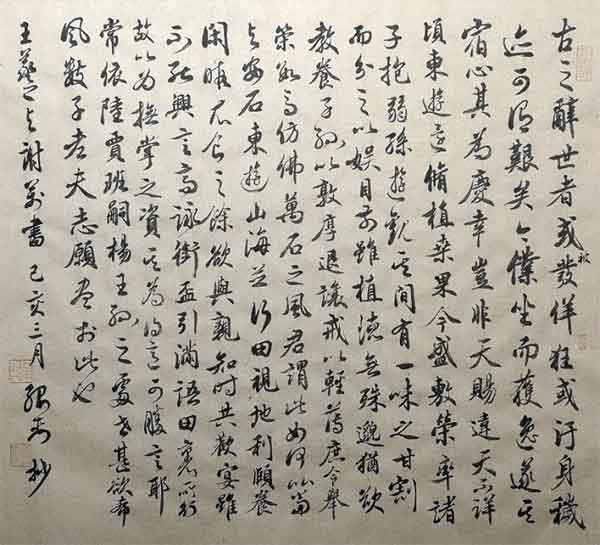 古之辭世者或被發佯狂或汙身穢
迹可謂艱矣今僕坐而獲逸遂其
宿心其為慶幸豈非天賜違天不祥
頃東遊還脩植桑果今盛敷榮率諸
子抱弱孫遊觀其間有一味之甘割
而分之以娛目前雖植德無殊邈猶欲
教養子孫以敦厚退讓戒以輕薄庶令舉
策數馬仿佛萬石之風君謂此如何比當
與安石東遊山海並行田視地利頤養
閑暇衣食之餘欲與親知時共歡宴雖
不能興言高詠銜盃引滿語田裏所行
故以為撫掌之資其為得意可勝言耶
常依陸賈班嗣楊王孫之處世甚欲希
風數子老夫志願盡於此也
王羲之與謝萬書 己亥三月 抄